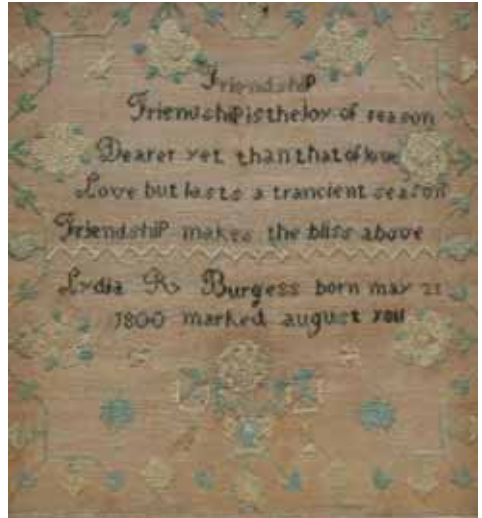 Friendship
Friendship is the Joy of reason
Dearer yet than that of love
Love but lasts a trancient season
Friendship makes the bliss above
Lydia R Burgess born may 21
1800 marked august